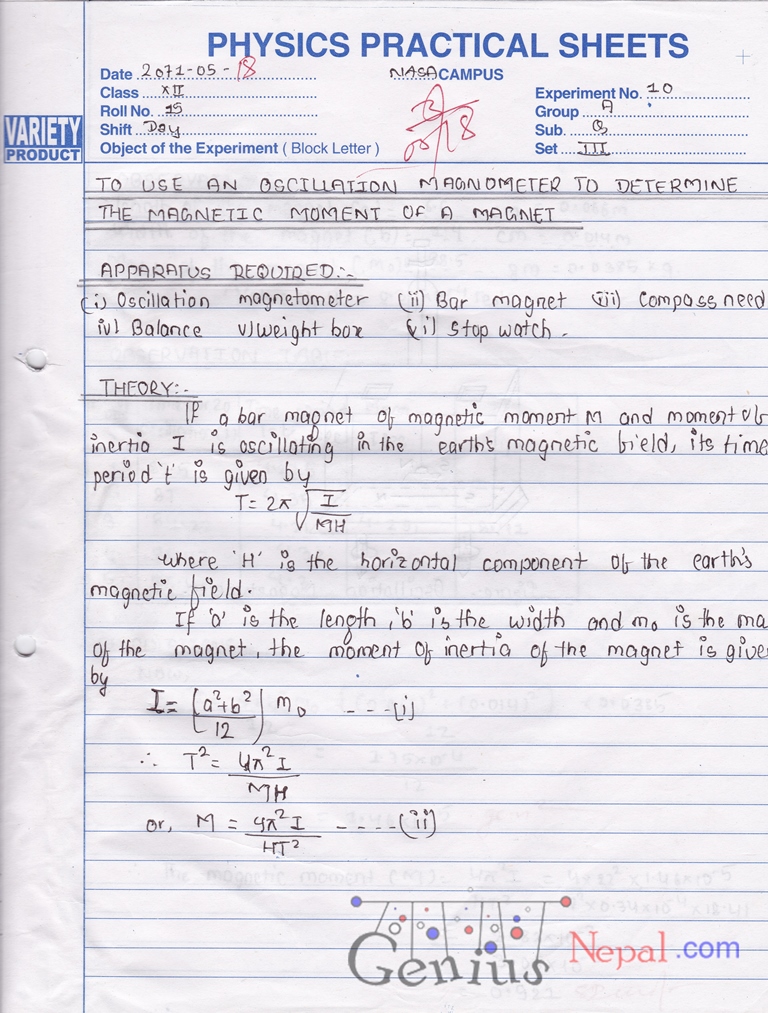 PHYSICS PRACTICAL SHEETS
Date 2071-05-18
NASA CAMPUS
Class XII
Experiment No. 10
Roll No. 15
Group A
Shift Day
Sub. Q
VARIETY
PRODUCT
Object of the Experiment ( Block Letter )
Set III
TO USE AN OSCILLATION MAGNOMETER TO DETERMINE
THE MAGNETIC MOMENT OF A MAGNET
APPARATUS REQUIRED:-
(i) Oscillation magnetometer (ii) Bar magnet (iii) Compass need
iv) Balance v) weight box (vi) Stop watch.
THEORY:-
If a bar magnet of magnetic moment M and moment of
inertia I is oscillating in the earth's magnetic field, its time
period 't' is given by
T = 2π √(I/MH)
where 'H' is the horizontal component of the earth's
magnetic field.
If 'a' is the length, 'b' is the width and m₀ is the ma
of the magnet, the moment of inertia of the magnet is give
by
I = ((a²+b²)/12) m₀ ---(i)
∴ T² = 4π²I/MH
or, M = 4π²I/HT² ----(ii)
Genius Nepal.com